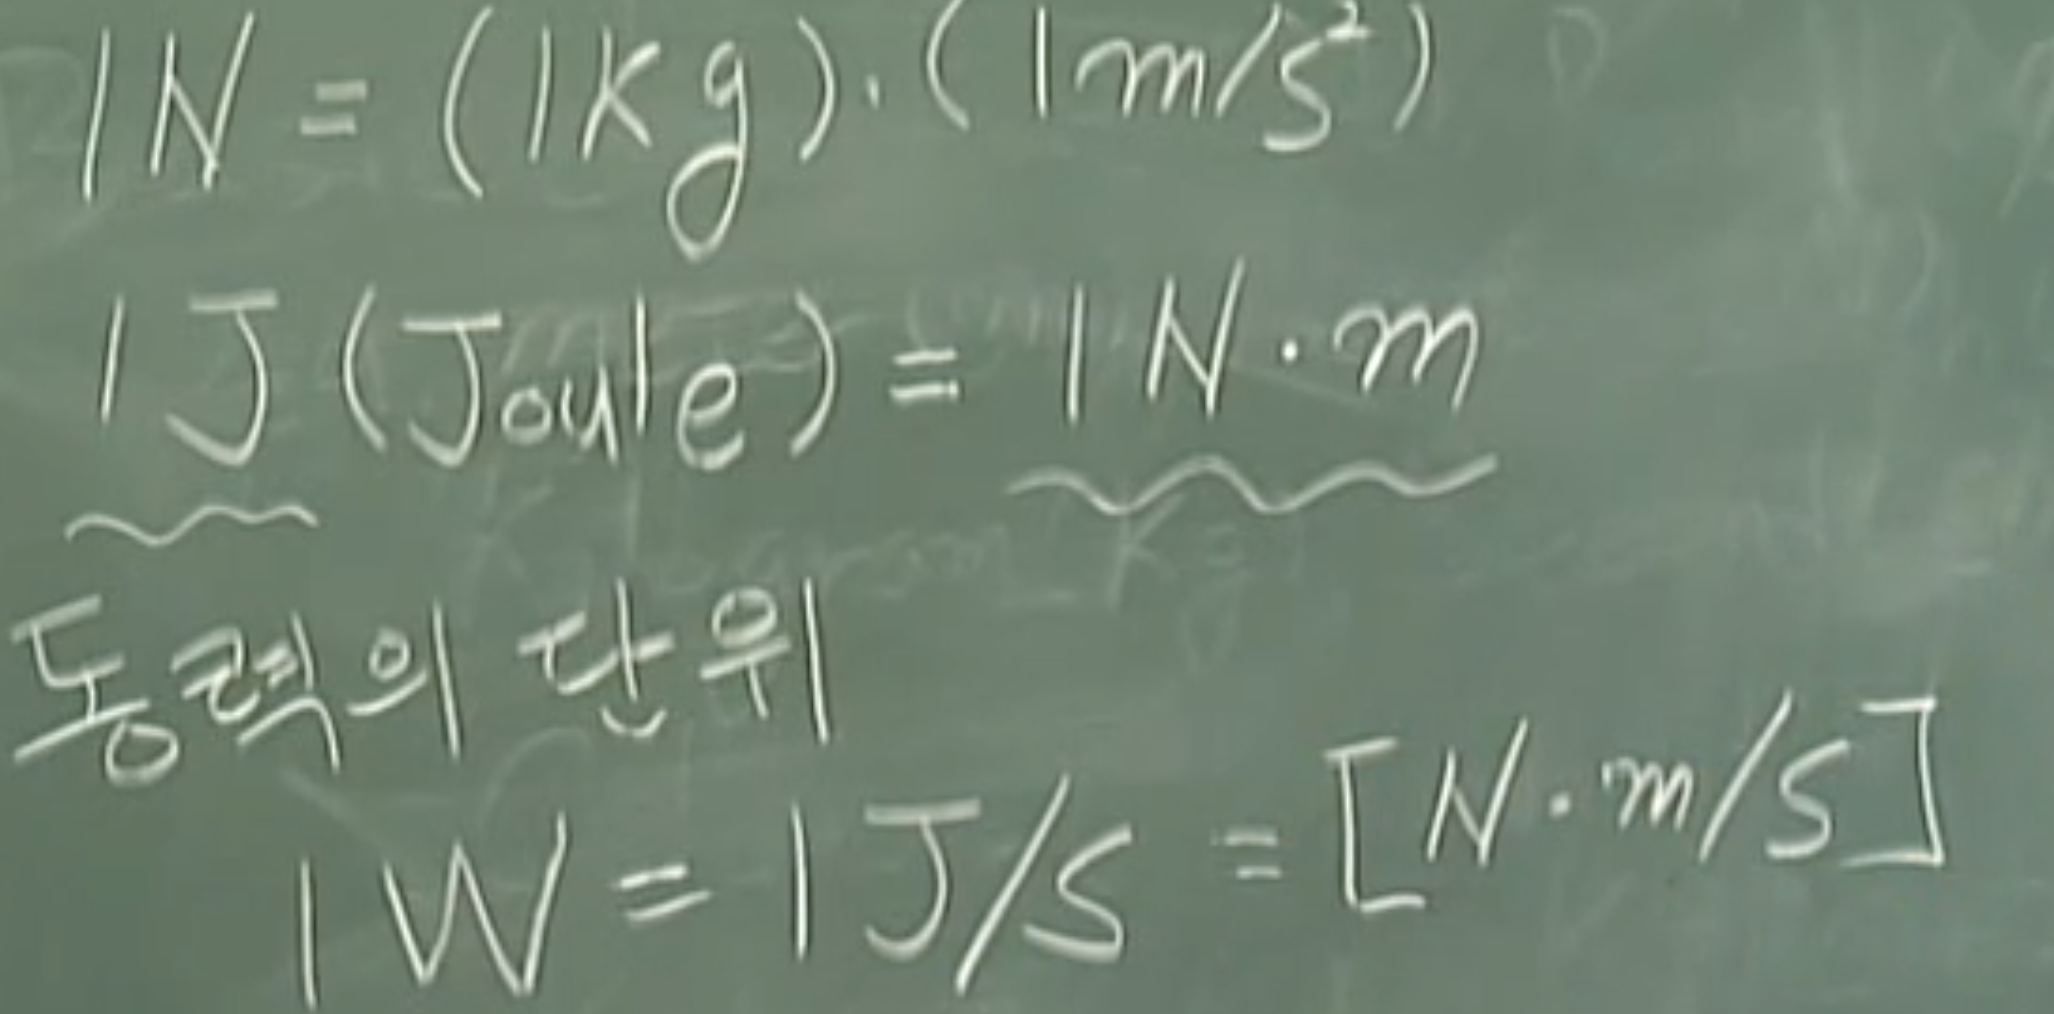 1N = (1Kg)·(1m/s²)
1J (Joule) = 1N·m
동력의 단위
1W = 1J/S = [N·m/S]